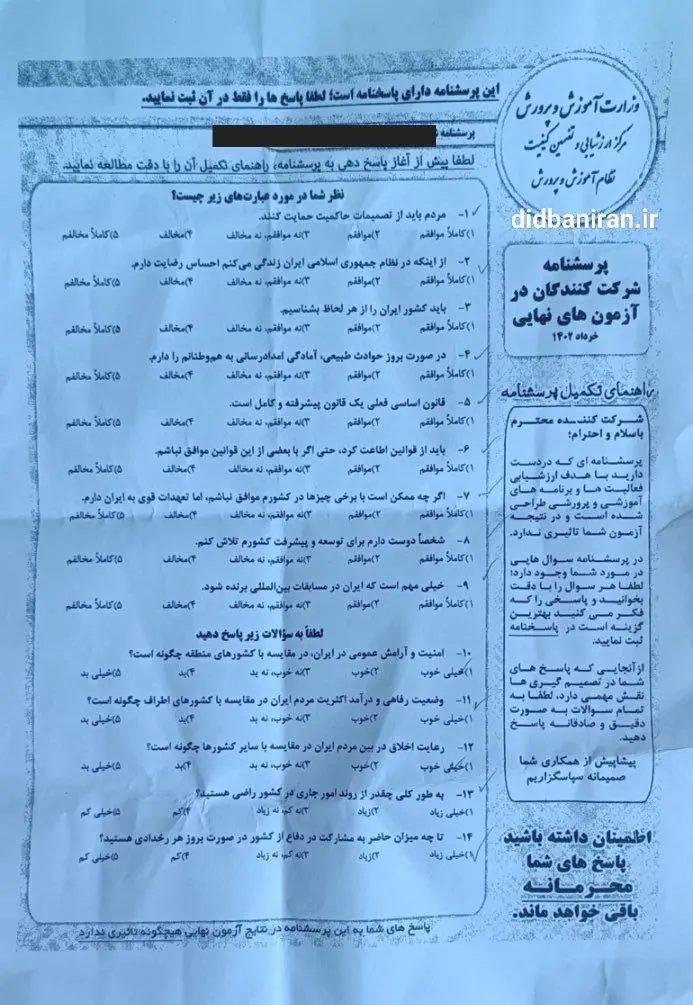 وزارت آموزش و پرورش
مرکز ارزشیابی و تضمین کیفیت
نظام آموزش و پرورش
didbaniran.ir
پرسشنامه
شرکت کنندگان در
آزمون های نهایی
خرداد ۱۴۰۲
راهنمای تکمیل پرسشنامه
شرکت کننده محترم
باسلام و احترام؛
پرسشنامه ای که دردست
دارید با هدف ارزشیابی
فعالیت ها و برنامه های
آموزشی و پرورشی طراحی
شده است و در نتیجه
آزمون شما تاثیری ندارد.
در پرسشنامه سوال هایی
در مورد شما وجود دارد؛
لطفا هر سوال را با دقت
بخوانید و پاسخی را که
فکر می کنید بهترین
گزینه است در پاسخنامه
ثبت نمایید.
ازآنجایی که پاسخ های
شما در تصمیم گیری ها
نقش مهمی دارد، لطفا به
تمام سوالات به صورت
دقیق و صادقانه پاسخ
دهید.
پیشاپیش از همکاری شما
صمیمانه سپاسگزاریم
اطمینان داشته باشید
پاسخ های شما
محرمانه
باقی خواهد ماند.
این پرسشنامه دارای پاسخنامه است؛ لطفا پاسخ ها را فقط در آن ثبت نمایید.
پرسشنامه
لطفا پیش از آغاز پاسخ دهی به پرسشنامه، راهنمای تکمیل آن را با دقت مطالعه نمایید.
نظر شما در مورد عبارت‌های زیر چیست؟
۱- مردم باید از تصمیمات حاکمیت حمایت کنند.
۱)کاملاً موافقم ۲)موافقم ۳)نه موافقم، نه مخالف ۴)مخالف ۵)کاملاً مخالفم
۲- از اینکه در نظام جمهوری اسلامی ایران زندگی می‌کنم احساس رضایت دارم.
۱)کاملاً موافقم ۲)موافقم ۳)نه موافقم، نه مخالف ۴)مخالف ۵)کاملاً مخالفم
۳- باید کشور ایران را از هر لحاظ بشناسیم.
۱)کاملاً موافقم ۲)موافقم ۳)نه موافقم، نه مخالف ۴)مخالف ۵)کاملاً مخالفم
۴- در صورت بروز حوادث طبیعی، آمادگی امدادرسانی به هم‌وطنانم را دارم.
۱)کاملاً موافقم ۲)موافقم ۳)نه موافقم، نه مخالف ۴)مخالف ۵)کاملاً مخالفم
۵- قانون اساسی فعلی یک قانون پیشرفته و کامل است.
۱)کاملاً موافقم ۲)موافقم ۳)نه موافقم، نه مخالف ۴)مخالف ۵)کاملاً مخالفم
۶- باید از قوانین اطاعت کرد، حتی اگر با بعضی از این قوانین موافق نباشم.
۱)کاملاً موافقم ۲)موافقم ۳)نه موافقم، نه مخالف ۴)مخالف ۵)کاملاً مخالفم
۷- اگر چه ممکن است با برخی چیزها در کشورم موافق نباشم، اما تعهدات قوی به ایران دارم.
۱)کاملاً موافقم ۲)موافقم ۳)نه موافقم، نه مخالف ۴)مخالف ۵)کاملاً مخالفم
۸- شخصاً دوست دارم برای توسعه و پیشرفت کشورم تلاش کنم.
۱)کاملاً موافقم ۲)موافقم ۳)نه موافقم، نه مخالف ۴)مخالف ۵)کاملاً مخالفم
۹- خیلی مهم است که ایران در مسابقات بین‌المللی برنده شود.
۱)کاملاً موافقم ۲)موافقم ۳)نه موافقم، نه مخالف ۴)مخالف ۵)کاملاً مخالفم
لطفاً به سؤالات زیر پاسخ دهید
۱۰- امنیت و آرامش عمومی در ایران، در مقایسه با کشورهای منطقه چگونه است؟
۱)خیلی خوب ۲)خوب ۳)نه خوب، نه بد ۴)بد ۵)خیلی بد
۱۱- وضعیت رفاهی و درآمد اکثریت مردم ایران در مقایسه با کشورهای اطراف چگونه است؟
۱)خیلی خوب ۲)خوب ۳)نه خوب، نه بد ۴)بد ۵)خیلی بد
۱۲- رعایت اخلاق در بین مردم ایران در مقایسه با سایر کشورها چگونه است؟
۱)خیلی خوب ۲)خوب ۳)نه خوب، نه بد ۴)بد ۵)خیلی بد
۱۳- به طور کلی چقدر از روند امور جاری در کشور راضی هستید؟
۱)خیلی زیاد ۲)زیاد ۳)نه کم، نه زیاد ۴)کم ۵)خیلی کم
۱۴- تا چه میزان حاضر به مشارکت در دفاع از کشور در صورت بروز هر رخدادی هستید؟
۱)خیلی زیاد ۲)زیاد ۳)نه کم، نه زیاد ۴)کم ۵)خیلی کم
پاسخ های شما به این پرسشنامه در نتایج آزمون نهایی هیچگونه تاثیری ندارد